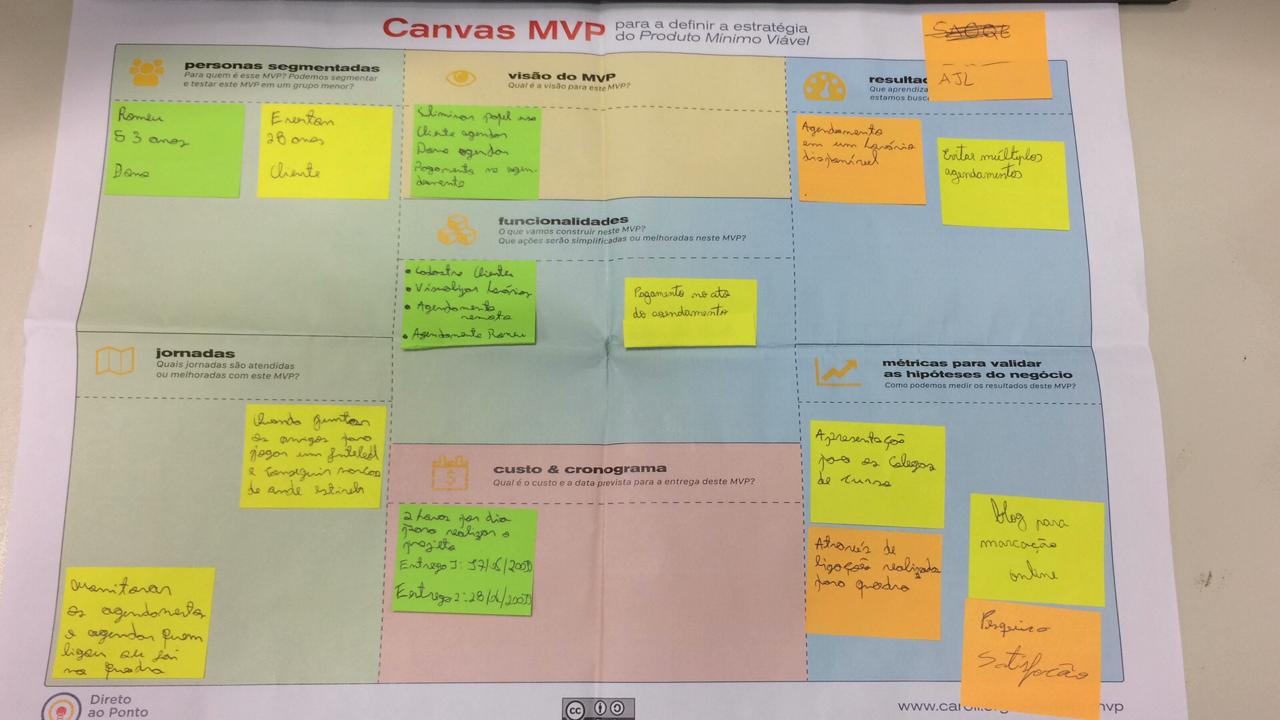 Canvas MVP
para a definir a estratégia
do Produto Mínimo Viável
SAQQE
AJL
personas segmentadas
Para quem é esse MVP? Podemos segmentar
e testar este MVP em um grupo menor?
Romeu
53 anos
Dono
Everton
28 anos
Cliente
visão do MVP
Qual é a visão para este MVP?
Eliminar papel no
Cliente agendar
Dono agendar
Pagamento no agen-
damento
resulta
Que aprendiza
estamos busc
Agendamento
em um horário
disponível
Evitar múltiplos
agendamentos
funcionalidades
O que vamos construir neste MVP?
Que ações serão simplificadas ou melhoradas neste MVP?
• Cadastro Clientes
• Visualizar horários
• Agendamento
remoto
• Agendamento Romeu
Pagamento no ato
do agendamento
jornadas
Quais jornadas são atendidas
ou melhoradas com este MVP?
Quando juntar
os amigos para
jogar um futebol
e conseguir marcar
de onde estiver
Monitorar
os agendamentos
e agendar quem
ligou ou foi
na quadra
custo & cronograma
Qual é o custo e a data prevista para a entrega deste MVP?
2 horas por dia
para realizar o
projeto
Entrega 1:
Entrega 2: 28/
métricas para validar
as hipóteses do negócio
Como podemos medir os resultados deste MVP?
Apresentação
para os Colegas
de curso
Através de
ligações realizada
para quadra
blog para
marcação
online
Pesquisa
Satisfação
Direto
ao Ponto
cc
www.caroli.org
mvp